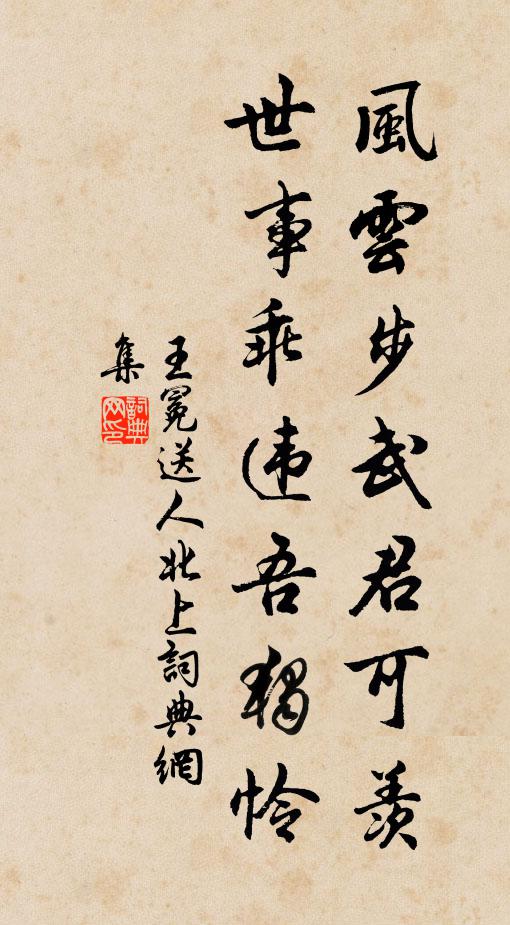 風雲步武君可羨
世事乖违吾獨怜
王冕送人北上詞典網
集
詞典網印